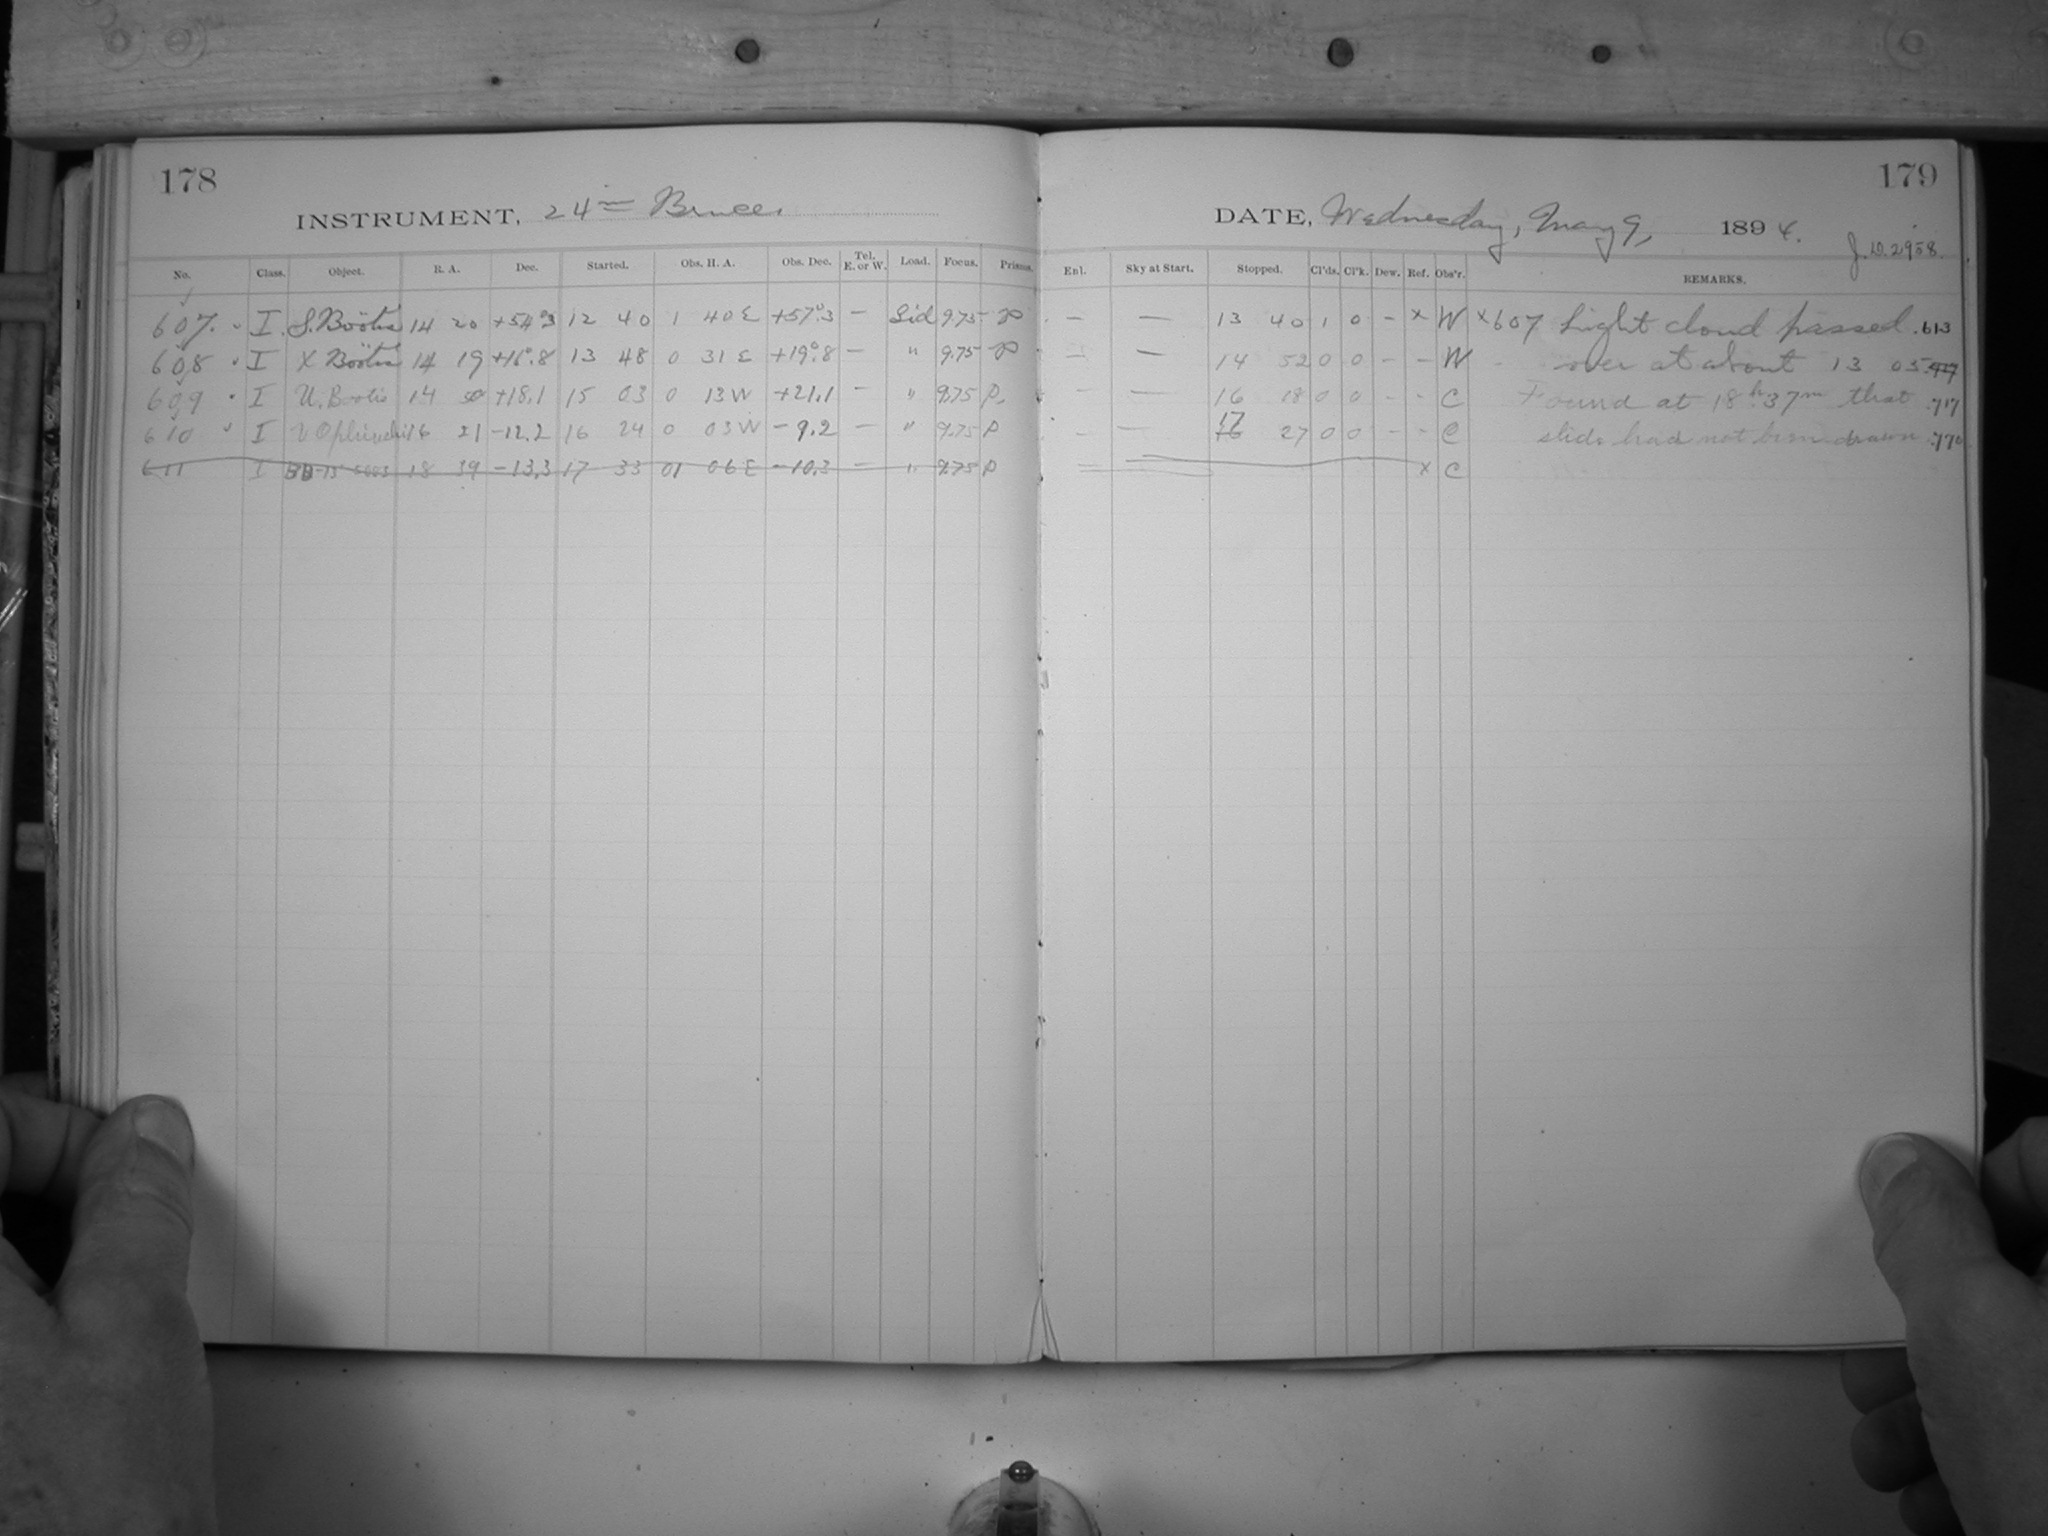 178
INSTRUMENT, 24 in Bruce.
No. Class. Object. R. A. Dec. Started. Obs. H. A. Obs. Dec. Tel. E. or W. Load. Focus. Prisms.
607. I. S. Boötis 14 20 +54°.3 12 40 1 40 E +57°.3 — Sid 9.75 P
608 I X Boötis 14 19 +16°.8 13 48 0 31 E +19°.8 — " 9.75 P
609 I U. Bootis 14 50 +18.1 15 03 0 13 W +21.1 — " 9.75 P.
610 I V Ophiuchi 16 21 -12.2 16 24 0 03 W -9.2 — " 9.75 P
611 I 18 39 -13.3 17 33 01 06 E -10.3 — " 9.75 P
179
DATE, Wednesday, May 9, 1894.
J.D. 2958.
Enl. Sky at Start. Stopped. Cl'ds. Cl'k. Dew. Ref. Obs'r. REMARKS.
— — 13 40 1 0 - x W x607 Light cloud passed .613
— — 14 52 0 0 - - W over at about 13 05
— — 16 18 0 0 - - C Found at 18h 37m that .717
- — 17 27 0 0 - - C slide had not been drawn .770
— — x C